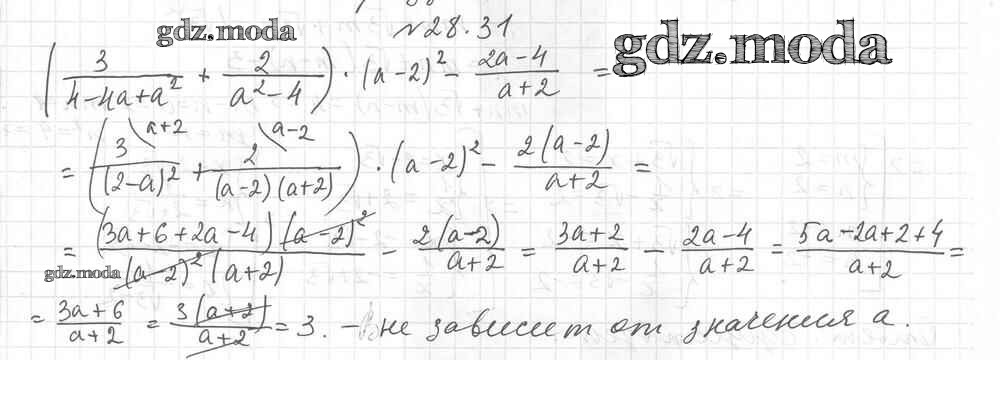 gdz.moda №28.31 gdz.moda
(3/(4-4a+a²) + 2/(a²-4)) · (a-2)² - (2a-4)/(a+2) =
= (3\a+2/(2-a)² + 2\a-2/((a-2)(a+2))) · (a-2)² - 2(a-2)/(a+2) =
= (3a+6+2a-4)(a-2)²/((a-2)²(a+2)) - 2(a-2)/(a+2) = (3a+2)/(a+2) - (2a-4)/(a+2) = (5a-2a+2+4)/(a+2) =
gdz.moda
= (3a+6)/(a+2) = 3(a+2)/(a+2) = 3. - не зависит от значения a.